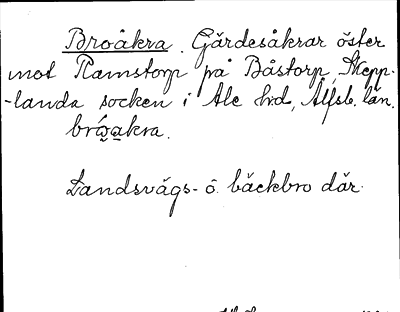 Broåkra. Gärdesåkrar öster
mot Ramstorp på Båstorp, Skepp-
-landa socken i Ale hrd, Älfsb. län.
Landsvägs- o. bäckbro där.